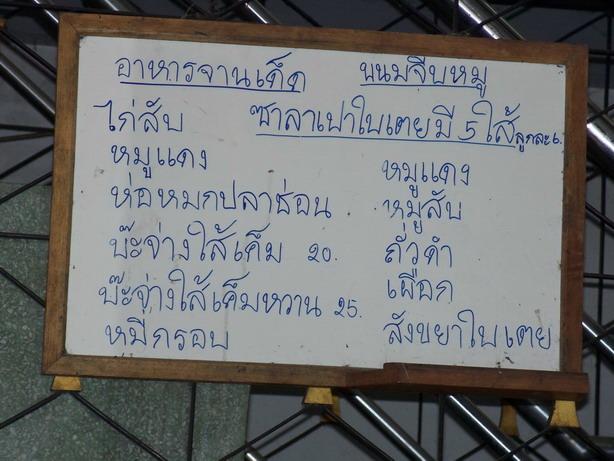 อาหารจานเด็ด ขนมจีบหมู
ไก่สับ ซาลาเปาใบเตยมี 5 ใส้ลูกละ 6.
หมูแดง หมูแดง
ห่อหมกปลาช่อน หมูสับ
บ๊ะจ่างใส้เค็ม 20. ถั่วดำ
บ๊ะจ่างใส้เค็มหวาน 25. เผือก
หมี่กรอบ สังขยาใบเตย